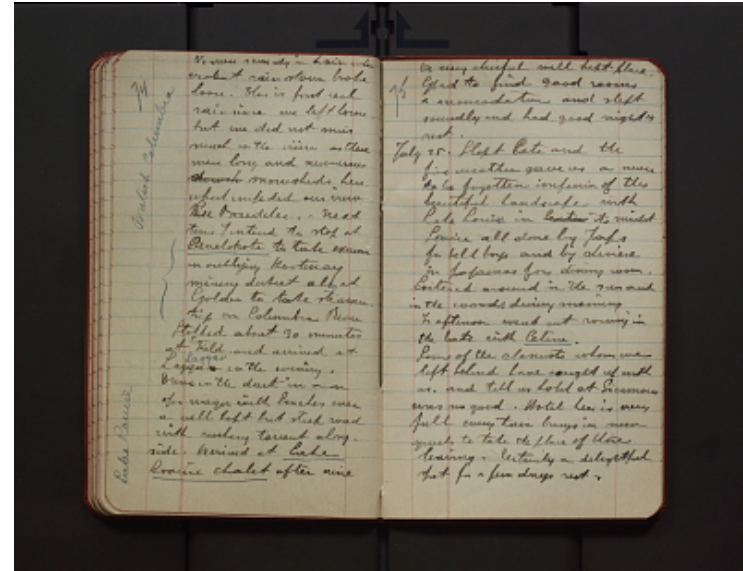 74
British Columbia
Lake Louise
violent rain storm broke
loose. This is first real
rain since we left home
but we did not miss
much in the view as there
were long and numerous
snowsheds here
which impeded our view
Next
time I intend to stop at
to take
in outlying Kootenay
mining district also at
Golden to take steamer
trip on Columbia River
Stopped about 20 minutes
at Field and arrived at
Laggan in the evening.
Drove in the dark in an
open wagon with benches over
a well kept but steep road
with rushing torrent along
side. Arrived at Lake
Louise chalet after nine
75
a very cheerful well kept place.
Glad to find good rooms
accomodation and slept
soundly and had good night's
rest.
July 25. Slept late and the
fine weather gave us a never
to be forgotten impression of this
beautiful landscape with
Lake Louise in its midst
Service all done by Japs
for bell boys and by Chinese
in for dining room.
Loitered around in the sun and
in the woods during morning
In afternoon went out rowing in
the lake with Celine.
Some of the chemists whom we
left behind have caught up with
us and tell us hotel at Sicamous
was no good. Hotel here is very
full every train brings in new
guests to take the place of those
leaving. Certainly a delightful
spot for a few days rest.